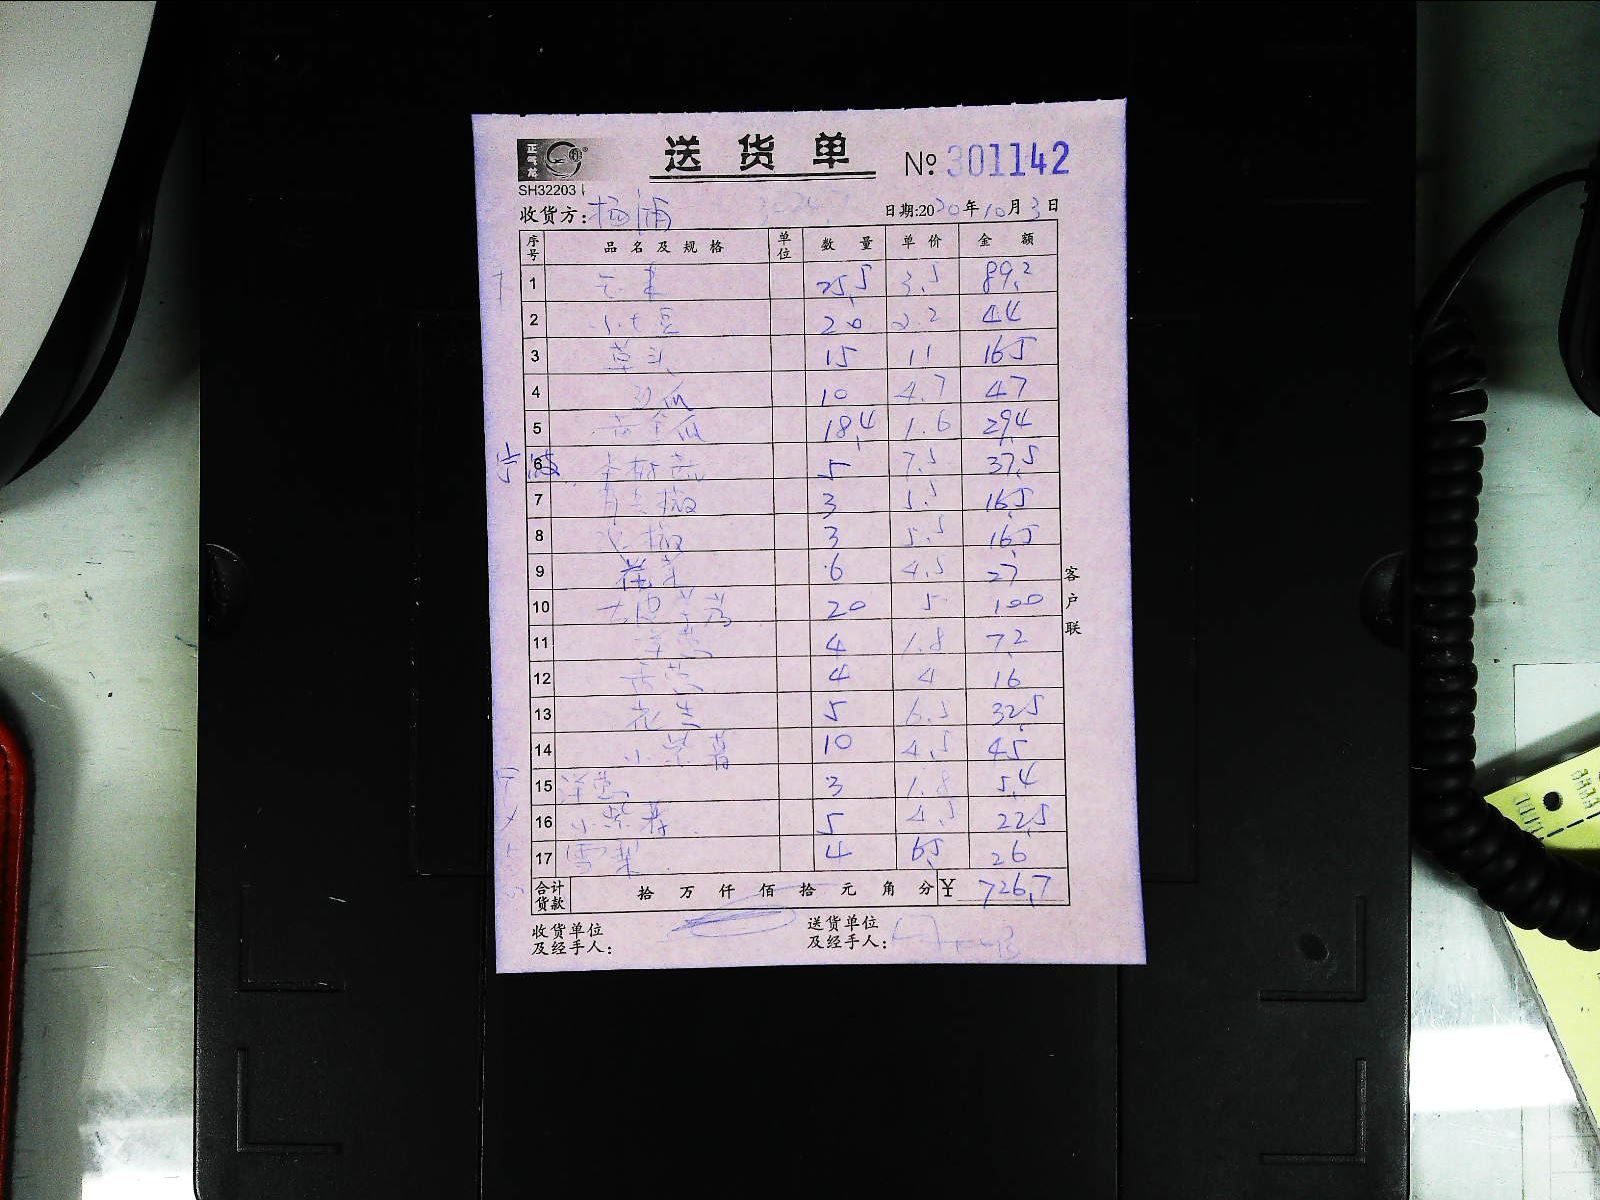 正气龙
送货单 № 301142
SH32203
收货方: 杨浦 日期:2020年10月3日
序号 品名及规格 单位 数量 单价 金额
1 25.5 3.5 89.2
2 小土豆 20 2.2 44
3 草头 15 11 165
4 瓜 10 4.7 47
5 黄金瓜 18.4 1.6 29.4
6 杏鲍菇 5 7.5 37.5
7 青尖椒 3 5.5 16.5
8 椒 3 5.5 16.5
9 花菜 6 4.5 27
10 20 5 100
11 洋葱 4 1.8 7.2
12 香芹 4 4 16
13 花生 5 6.5 32.5
14 小紫薯 10 4.5 45
15 洋葱 3 1.8 5.4
16 小紫薯 5 4.5 22.5
17 雪梨 4 6.5 26
合计货款 拾 万 仟 佰 拾 元 角 分 ¥ 726.7
收货单位及经手人:
送货单位及经手人:
客户联